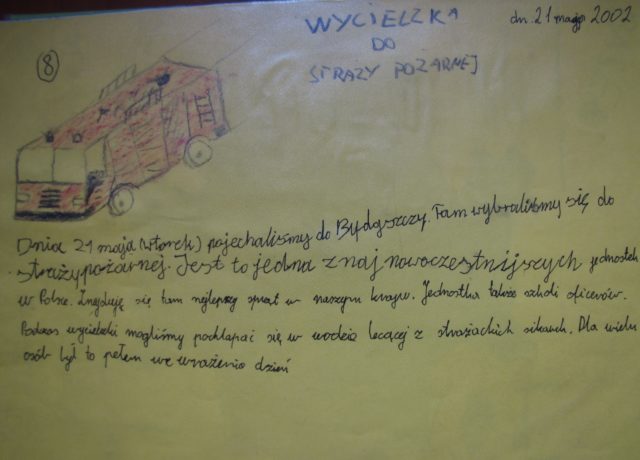 8
WYCIECZKA
DO
STRAŻY POŻARNEJ
dn. 21 maja 2002
Dnia 21 maja (wtorek) pojechaliśmy do Bydgoszczy. Tam wybraliśmy się do
straży pożarnej. Jest to jedna z naj nowocześniejszych jednostek
w Polsce. Znajduję się tam najlepszy sprzęt w naszym kraju. Jednostka także szkoli oficerów.
Podczas wycieczki mogliśmy pochlapać się w wodzie lecącej z strażackich sikawek. Dla wielu
osób był to pełem wrażenia dzień